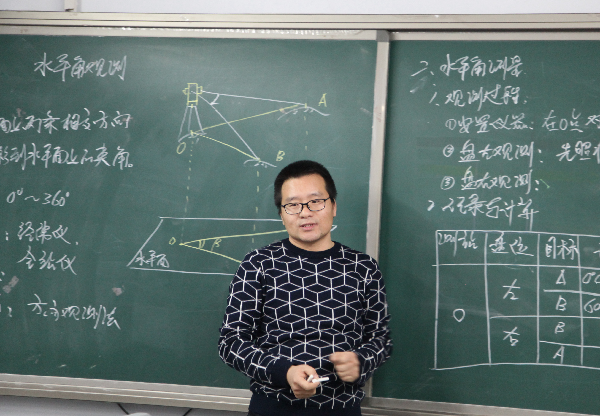 水平角观测
两相交方向
到水平面上的夹角。
0°~360°
:经纬仪、
全站仪
: 方向观测法
A
O
B
O
β
水平面
二、水平角测量
1、观测过程:
①安置仪器: 在O点
②盘左观测: 先照
③盘右观测:
2、记录与计算
测站 盘位 目标
O 左 A 0°0
B 60
右 B
A